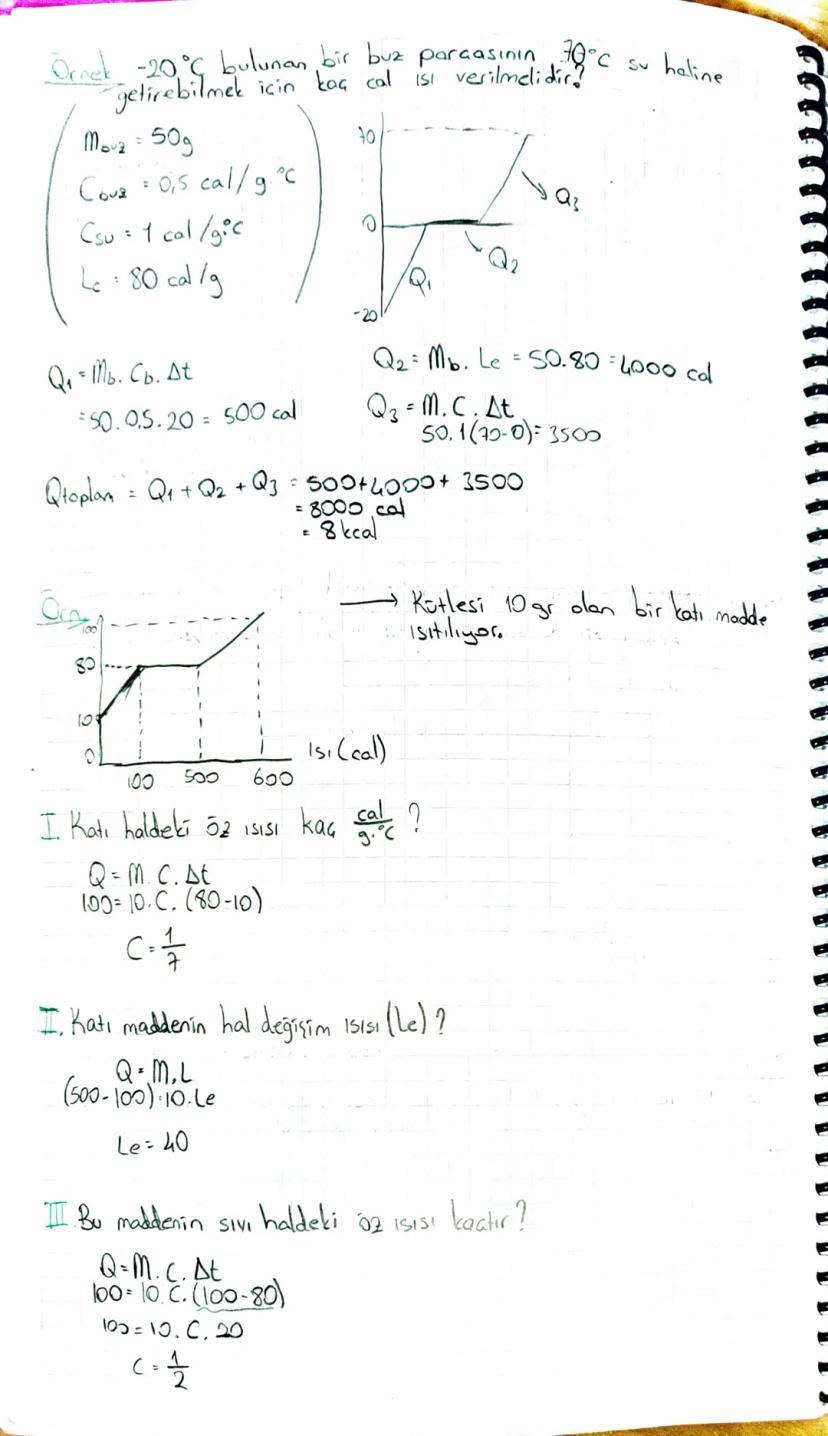 Örnek -20°C bulunan bir buz parçasının 70°C su haline
getirebilmek için kaç cal ısı verilmelidir?
Mbuz = 50g
Cbuz = 0,5 cal/g.°C
Csu = 1 cal/g°C
Le = 80 cal/g
70
0
-20
Q1
Q2
Q3
Q1 = Mb. Cb. Δt
= 50. 0,5. 20 = 500 cal
Q2 = Mb. Le = 50.80 = 4000 cal
Q3 = M. C. Δt
50. 1(70-0) = 3500
Qtoplan = Q1 + Q2 + Q3 = 500+4000+ 3500
= 8000 cal
= 8 kcal
Örn
100
80
10
0
100 500 600
Isı (cal)
→ Kütlesi 10 gr olan bir katı madde
ısıtılıyor.
I. Katı haldeki öz ısısı kaç cal/g.°C ?
Q = M. C. Δt
100 = 10. C. (80-10)
C = 1/7
II. Katı maddenin hal değişim ısısı (Le) ?
Q = M.L
(500-100) = 10. Le
Le = 40
III Bu maddenin sıvı haldeki öz ısısı kaçtır?
Q = M. C. Δt
100 = 10. C. (100-80)
100 = 10. C. 20
C = 1/2